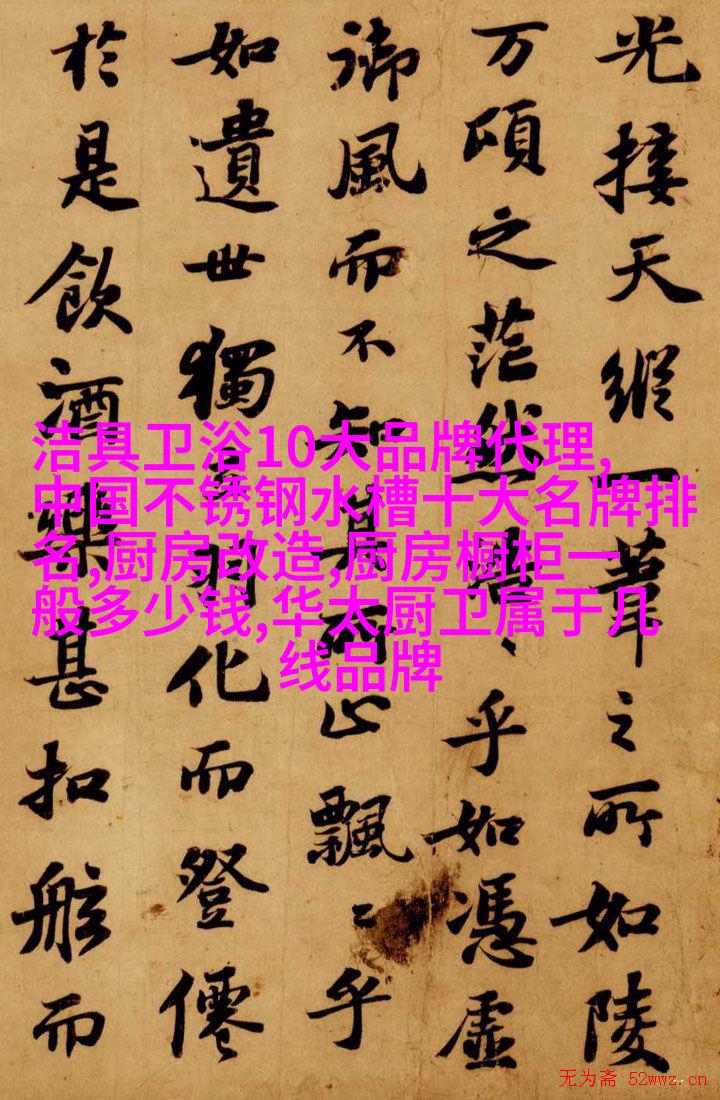 光接天縱一葦之所如陵
万頃之茫然乎如馮虛
御風而不知其所止飄〻乎
如遺世獨立羽化而登僊
於是飲酒樂甚扣舷而
洁具卫浴10大品牌代理,
中国不锈钢水槽十大名牌排
名,厨房改造,厨房橱柜一
般多少钱,华太厨卫属于几
线品牌
无为斋 52wwz.cn